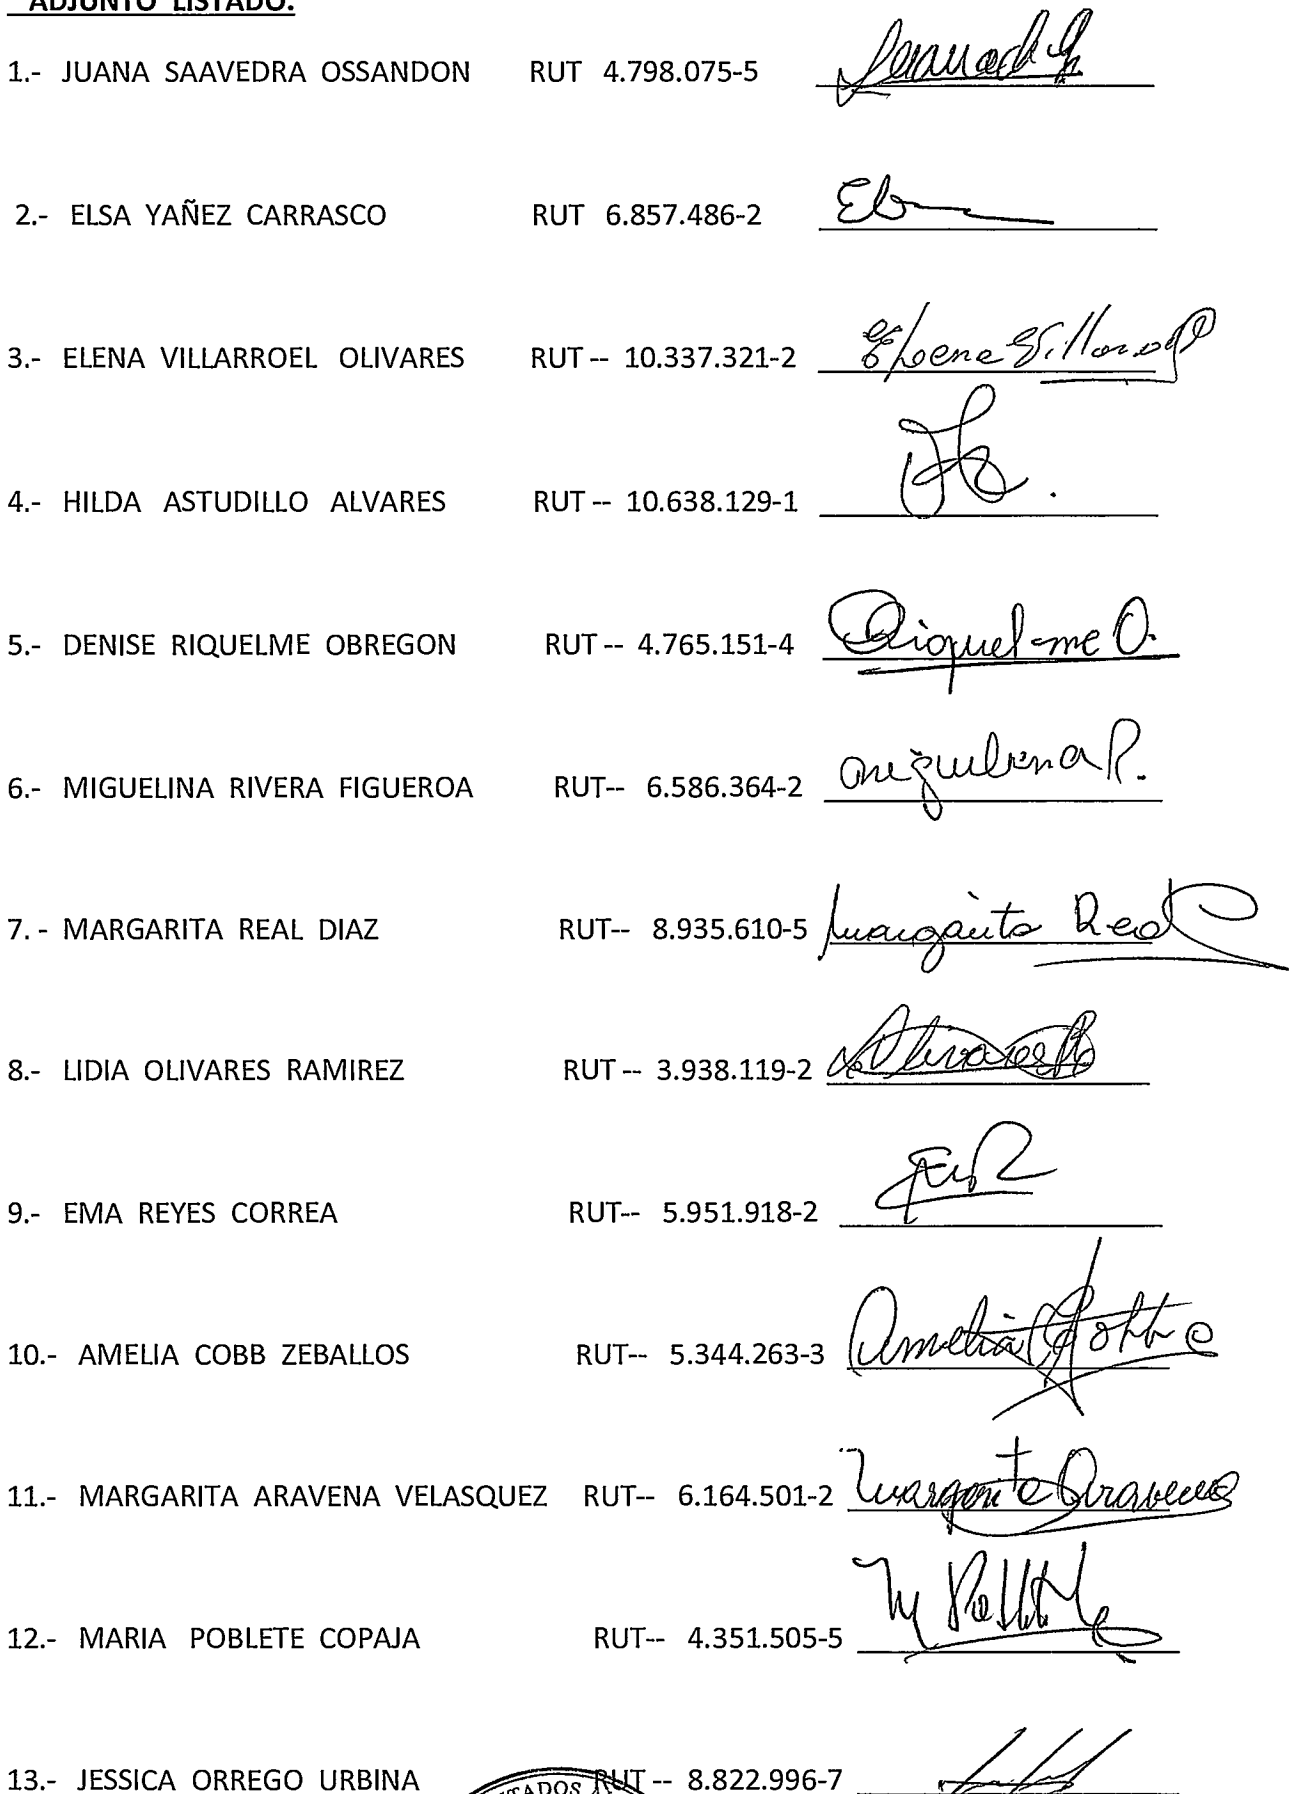 ADJUNTO LISTADO.
1.- JUANA SAAVEDRA OSSANDON RUT 4.798.075-5
2.- ELSA YAÑEZ CARRASCO RUT 6.857.486-2
3.- ELENA VILLARROEL OLIVARES RUT -- 10.337.321-2
4.- HILDA ASTUDILLO ALVARES RUT -- 10.638.129-1
5.- DENISE RIQUELME OBREGON RUT -- 4.765.151-4 Riquelme O.
6.- MIGUELINA RIVERA FIGUEROA RUT-- 6.586.364-2 Miguelina R.
7. - MARGARITA REAL DIAZ RUT-- 8.935.610-5 Margarita Real
8.- LIDIA OLIVARES RAMIREZ RUT -- 3.938.119-2 Olivares R
9.- EMA REYES CORREA RUT-- 5.951.918-2
10.- AMELIA COBB ZEBALLOS RUT-- 5.344.263-3 Amelia
11.- MARGARITA ARAVENA VELASQUEZ RUT-- 6.164.501-2 Margarita Aravena
12.- MARIA POBLETE COPAJA RUT-- 4.351.505-5
13.- JESSICA ORREGO URBINA RUT -- 8.822.996-7